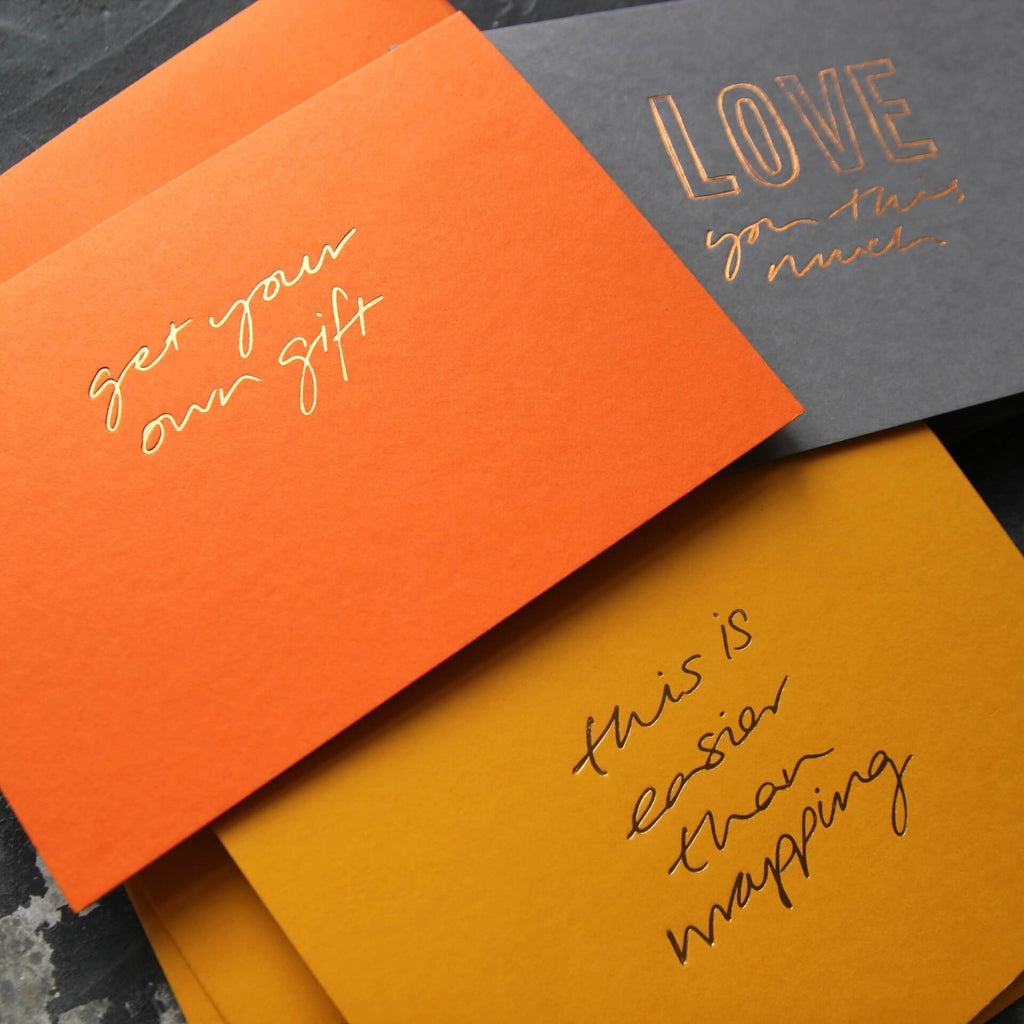 get your
own gift
LOVE
you this
much
this is
easier
than
wrapping